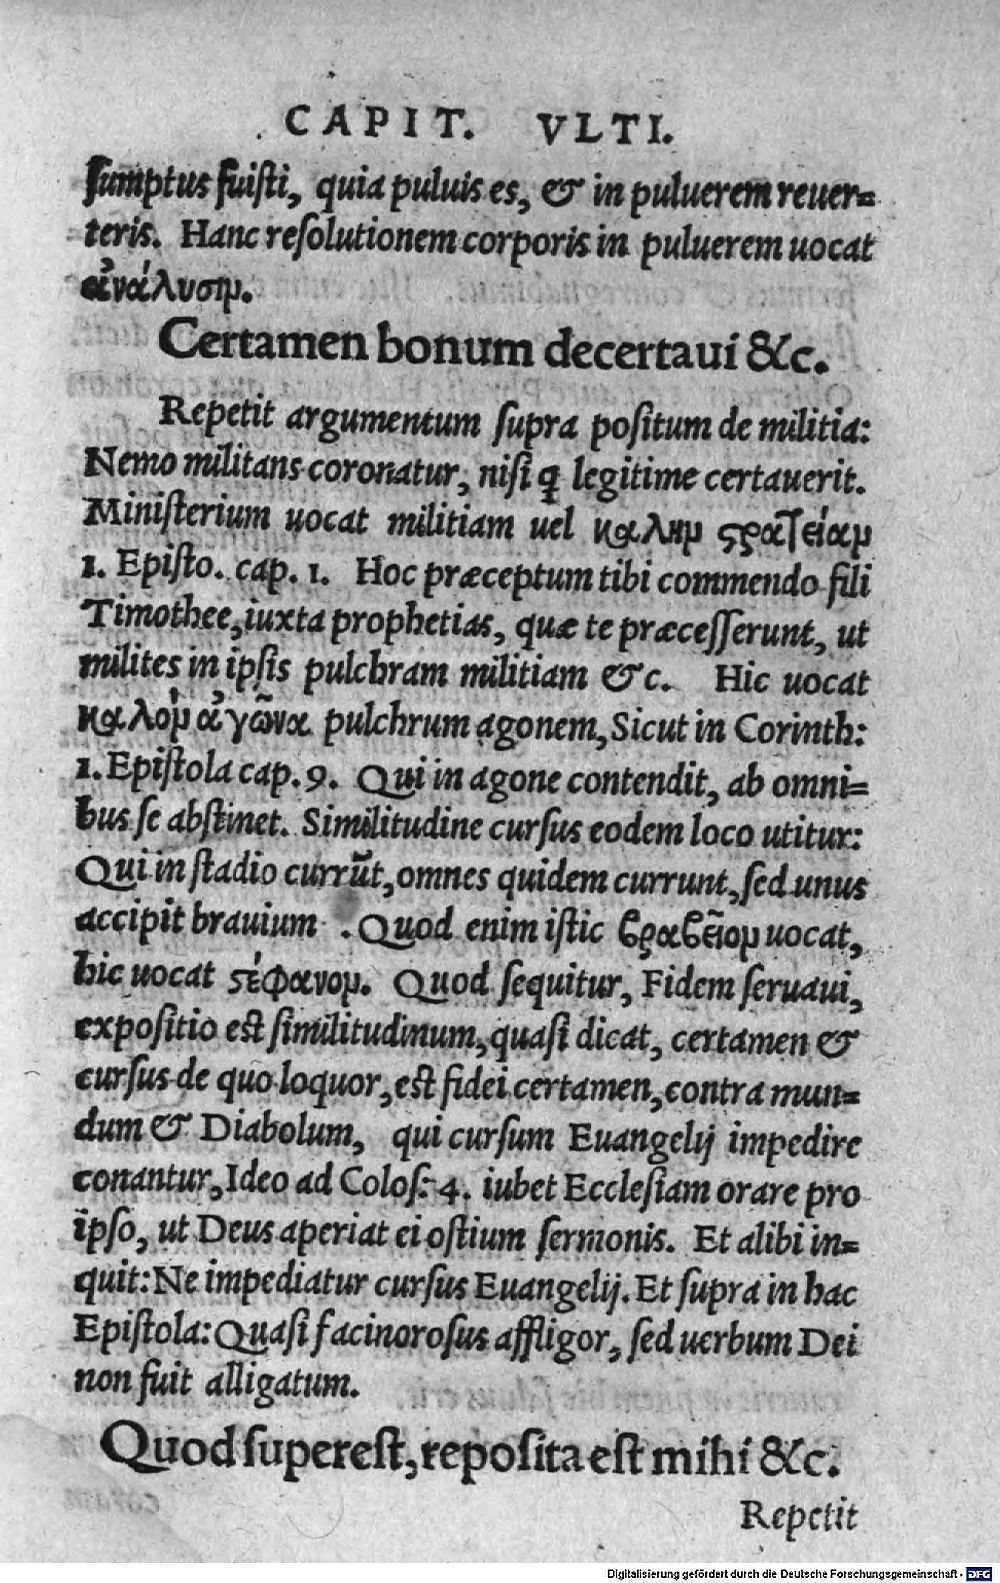 CAPIT. VLTI.
ſumptus fuiſti, quia puluis es, & in puluerem reuer=
teris. Hanc reſolutionem corporis in puluerem uocat
ἀνάλυσιμ.
Certamen bonum decertaui &c.
Repetit argumentum ſupra poſitum de militia:
Nemo militans coronatur, niſi ꝗ legitime certauerit.
Miniſterium uocat militiam uel καλημ ϛρατείαμ
1. Epiſto. cap. 1. Hoc præceptum tibi commendo fili
Timothee, iuxta prophetias, quæ te præceſſerunt, ut
milites in ipſis pulchram militiam &c. Hic uocat
καλὸμ ἀγῶνα pulchrum agonem, Sicut in Corinth:
1. Epiſtola cap. 9. Qui in agone contendit, ab omni=
bus ſe abſtinet. Similitudine curſus eodem loco utitur:
Qui in ſtadio currūt, omnes quidem currunt, ſed unus
accipit brauium . Quod enim iſtic βραβεῖομ uocat,
hic uocat ϛέφανομ. Quod ſequitur, Fidem ſeruaui,
expoſitio eſt ſimilitudinum, quaſi dicat, certamen &
curſus de quo loquor, eſt fidei certamen, contra mun=
dum & Diabolum, qui curſum Euangelij impedire
conantur, Ideo ad Coloſ: 4. iubet Eccleſiam orare pro
ipſo, ut Deus aperiat ei oſtium ſermonis. Et alibi in=
quit: Ne impediatur curſus Euangelij. Et ſupra in hac
Epiſtola: Quaſi facinoroſus affligor, ſed uerbum Dei
non fuit alligatum.
Quod ſupereſt, repoſita eſt mihi &c.
Repetit
Digitalisierung gefördert durch die Deutsche Forschungsgemeinschaft - DFG